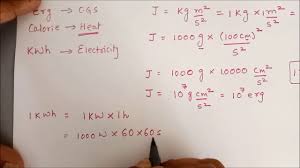 erg → CGS
Calorie → Heat
KWh → Electricity
J = Kg m²/s² = 1 Kg × 1 m²/s²
J = 1000 g × (100 cm)²/s²
J = 1000 g × 10000 cm²/s²
J = 10⁷ g cm²/s² = 10⁷ erg
1 KWh = 1 KW × 1 h
= 1000 W × 60 × 60 s